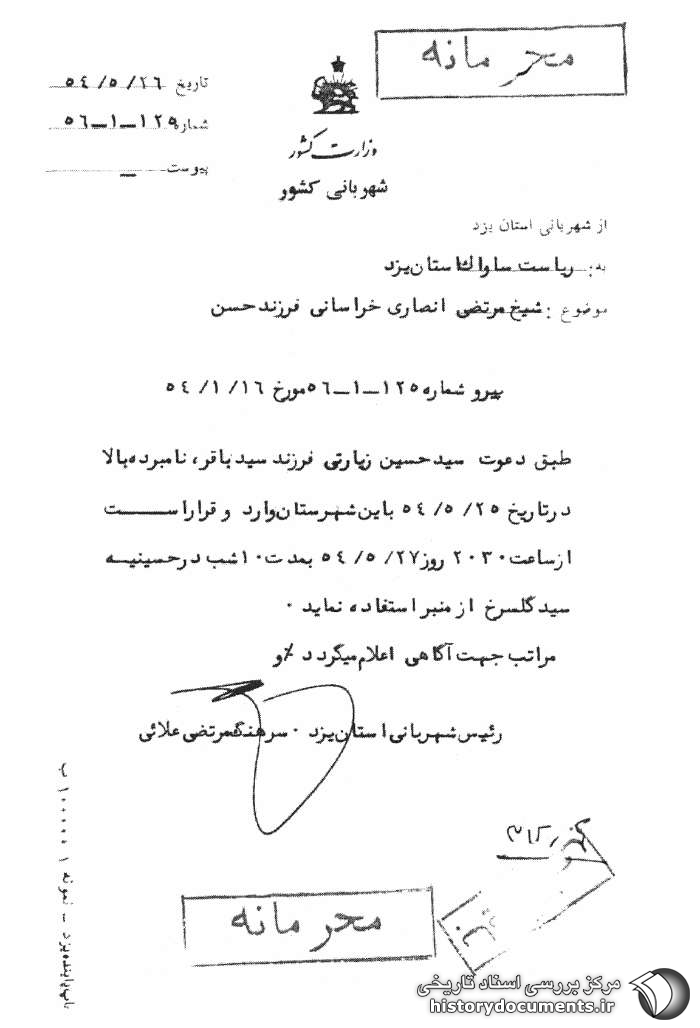 محرمانه
تاریخ ۵٤/۵/۲٦
شماره ۱۲۵-۱-۵٦
پیوست
وزارت کشور
شهربانی کشور
از شهربانی استان یزد
به: ریاست ساواک استان یزد
موضوع: شیخ مرتضی انصاری خراسانی فرزند حسن
پیرو شماره ۱۲۵-۱-۵٦ مورخ ۵٤/۱/۱٦
طبق دعوت سید حسین زیارتی فرزند سید باقر، نامبرده بالا
در تاریخ ۵٤/۵/۲۵ باین شهرستان وارد و قرار است
از ساعت ۲۰۳۰ روز ۵٤/۵/۲۷ بمدت ۱۰ شب در حسینیه
سید گلسرخ از منبر استفاده نماید ٠
مراتب جهت آگاهی اعلام میگردد /و
رئیس شهربانی استان یزد ٠ سرهنگ مرتضی علائی
محرمانه
پاینده یزد - نمونه ۱ ۱۰۰۰۰۰ ب
مرکز بررسی اسناد تاریخی
historydocuments.ir